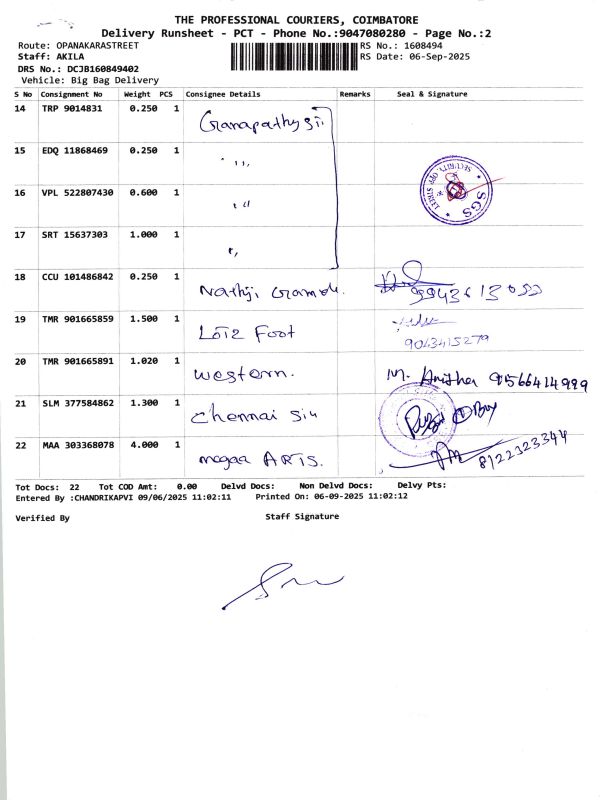 THE PROFESSIONAL COURIERS, COIMBATORE
Delivery Runsheet - PCT - Phone No.:9047080280 - Page No.:2
Route: OPANAKARASTREET RS No.: 1608494
Staff: AKILA RS Date: 06-Sep-2025
DRS No.: DCJB160849402
Vehicle: Big Bag Delivery
S No Consignment No Weight PCS Consignee Details Remarks Seal & Signature
14 TRP 9014831 0.250 1 Ganapathy
15 EDQ 11868469 0.250 1 ,,
16 VPL 522807430 0.600 1 ,,
SGS
17 SRT 15637303 1.000 1 ,,
18 CCU 101486842 0.250 1 Nathji
19 TMR 901665859 1.500 1 Foot 9043415279
20 TMR 901665891 1.020 1 western. M. Anitha 9566414999
21 SLM 377584862 1.300 1 Chennai
22 MAA 303368078 4.000 1 megaa ARTS. 8122323344
Tot Docs: 22 Tot COD Amt: 0.00 Delvd Docs: Non Delvd Docs: Delvy Pts:
Entered By :CHANDRIKAPVI 09/06/2025 11:02:11 Printed On: 06-09-2025 11:02:12
Verified By Staff Signature